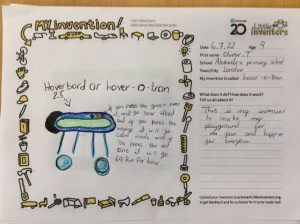 MY invention!
Little Inventors
20
Date 6.7.22 Age 9
First name Oliver.T
School Alexandra primary school
Town/City London
My invention is called hover-o-tron
Hoverbord or hover-o-tron
2.5
if you press the green one it
will go how speed
but if you press the
orange it will go
calm mode and if
You press the red
one it will go
What does it do? How does it work?
Tell us all about it!
This is my invention
to make my
playground
fun and happier
for everyone
Upload your invention to
to get feedback and for a chance for it to be made real!